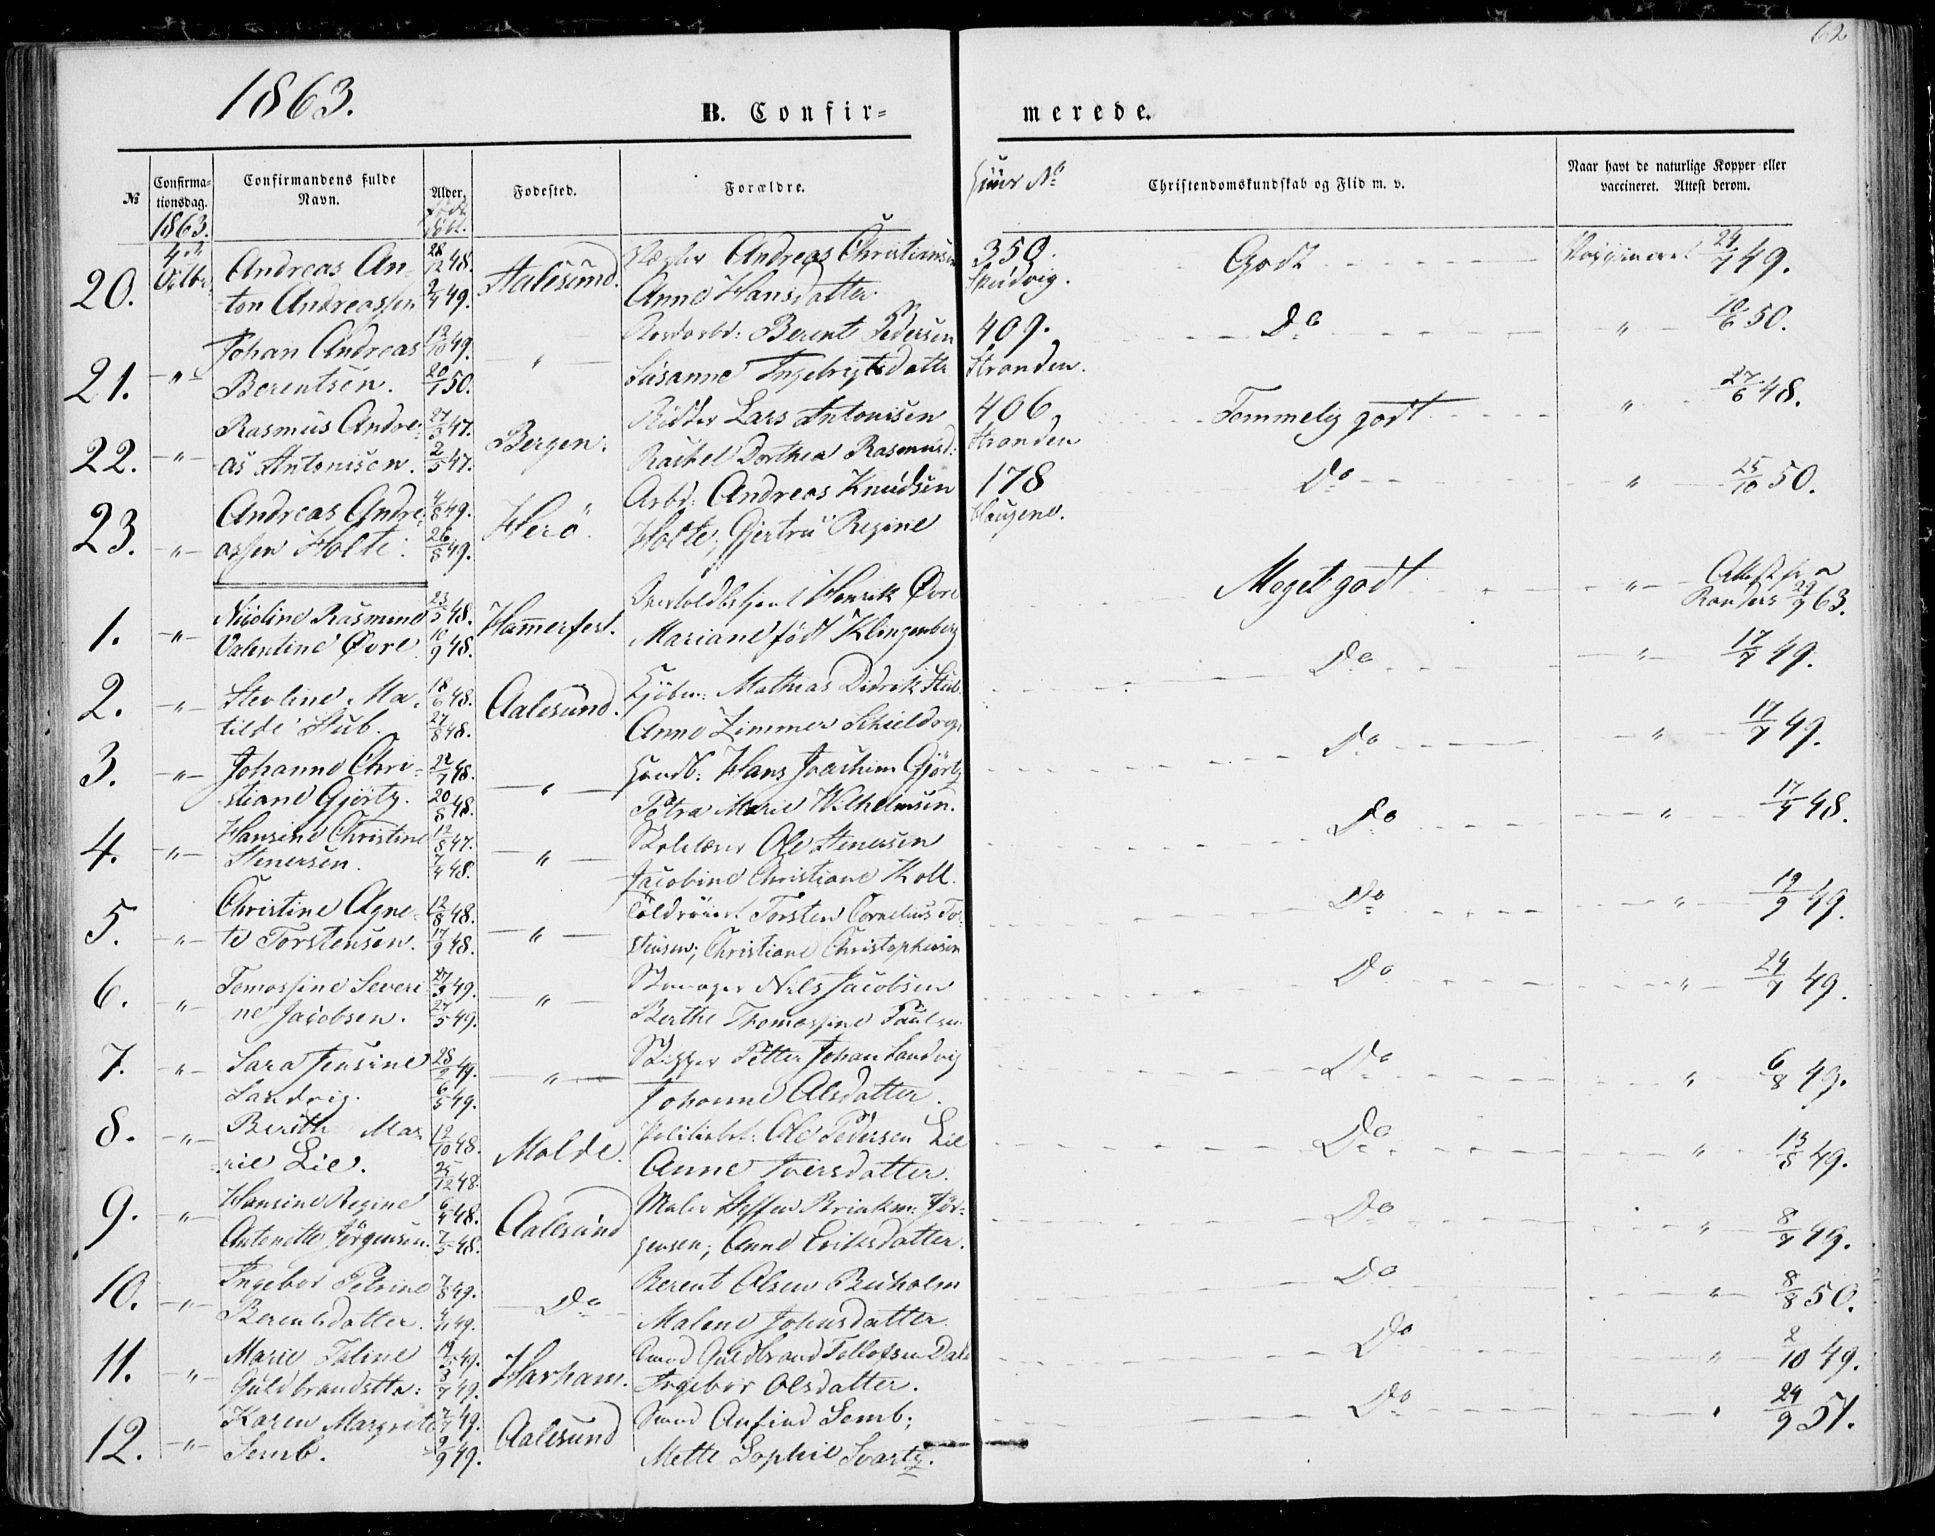 1863.
B. Confir-
merede.
62
№
Confirma-
tionsdag.
1863.
Confirmandens fulde
Navn.
Alder.
Fødested.
Forældre.
Huus No
Christendomskundskab og Flid m. v.
Naar havt de naturlige Kopper eller
vaccineret. Attest derom.
20.
4de
Octbr.
Andreas An-
ton Andreassen
28/12 48.
2/4 49.
Aalesund.
Andreas Christiansen
Anne Hansdatter.
350.
Godt
Vaccineret
24/7 49.
21. -"-
Johan Andreas
Berentsen.
12/10 49.
20/1 50.
"
Berent Pedersen
Susanne Ingebrigtsdatter
409.
Stranden.
Do
"
10/6 50.
22. -"-
Rasmus Andre-
as Antonisen.
27/3 47.
2/5 47.
Bergen.
Lars Antonisen
Rachel Dorthea Rasmusd:
406.
Stranden
Temmelig godt
"
27/6 48.
23. -"-
Andreas Andre-
assen Holte.
4/8 49.
26/8 49.
Herö.
Arbd: Andreas Knudsen
Holte; Gjertru Regine
178
Haugene.
Do
"
25/10 50.
1. -"-
Nicoline Rasmine
Valentine Øvre
23/5 48.
10/9 48.
Hamerfest.
Henrik Øvre
Mariane født Klingenberg
Meget godt
"
Attest fra
Randers 29/9 63.
2. -"-
Stevline Ma-
tilde Stub.
18/6 48.
27/8 48.
Aalesund.
Kjöbm: Mathias Didrik Stub
Anne Zimmer
Do
"
17/7 49.
3. -"-
Johanne Chri-
stiane Gjörtz.
22/7 48.
20/8 48.
"
Handb: Hans Joachim Gjörtz
Petra Marie Wilhelmsen.
Do
"
17/7 49.
4. -"-
Hansine Christine
Stenersen.
12/8 47.
7/4 48.
"
Ole Stenersen
Jacobine Christiane Koll.
Do
"
17/7 48.
5. -"-
Christine Agne-
te Torstensen.
12/8 48.
17/9 48.
"
Torsten Cornelius Tor-
stensen; Christiane Christophersen
Do
"
19/9 49.
6. "
Tomassine Severi-
ne Jacobsen.
27/3 49.
27/5 49.
"
Nils Jacobsen
Berthe Thomassine Paulsen
Do
"
24/7 49.
7. -"-
Sara Jensine
Landvig.
28/2 49.
6/5 49.
"
Skipper Petter Johan Landvig
Johanne Olsdatter.
Do
"
6/8 49.
8. -"-
Berith Ma-
rie Lie.
12/10 48.
25/12 48.
Molde.
Politibet: Ole Pedersen Lie
Anne Iversdatter.
Do
"
13/8 49.
9. -"-
Hansine Regine
Antonette Jörgensen.
6/4 48.
7/5 48.
Aalesund
Maler Steffen Brinkm: Jör-
gensen; Anne Eriksdatter.
Do
"
8/7 49.
10. -"-
Ingebor Petrine
Berentsdatter.
7/8 49.
4/11 49.
Do
Berent Olsen Buholm
Malene Johnsdatter.
Do
"
8/8 50.
11. -"-
Marie Toline
Guldbrandsdtr:
3/7 49.
Harham.
Guldbrand Tollofsen Dale
Ingebor Olsdatter.
Do
"
2/10 49.
12. -"-
Karen Margrete
Semb.
7/7 49.
9/9 49.
Aalesund
Anfind Semb;
Mette Sophie Svartz.
Do
"
24/9 51.